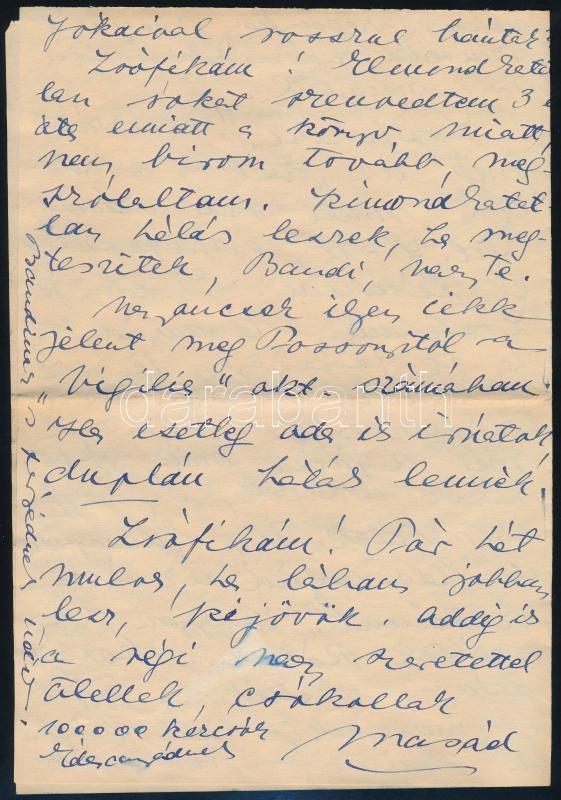 Jókaival rosszul bántak?
Zsófikám! Elmondhatat
lan sokat szenvedtem 3 é
óta emiatt a könyv miatt,
nem birom tovább, meg-
szólaltam. Kimondhatat-
lan hálás leszek, ha meg-
teszitek, Bandi, vagy te.
ilyen cikk
jelent meg Possonyitól a
"Vigilia" okt. számában.
Ha esetleg oda is irnátok,
duplán hálás lennék.
Zsófikám! Pár hét
mulva, ha lábam jobban
lesz, kijövök. Addig is
a régi nagy szeretettel
ölellek, csókollak
100000 kézcsók
Édesanyádnak
Masád
Bandinak s